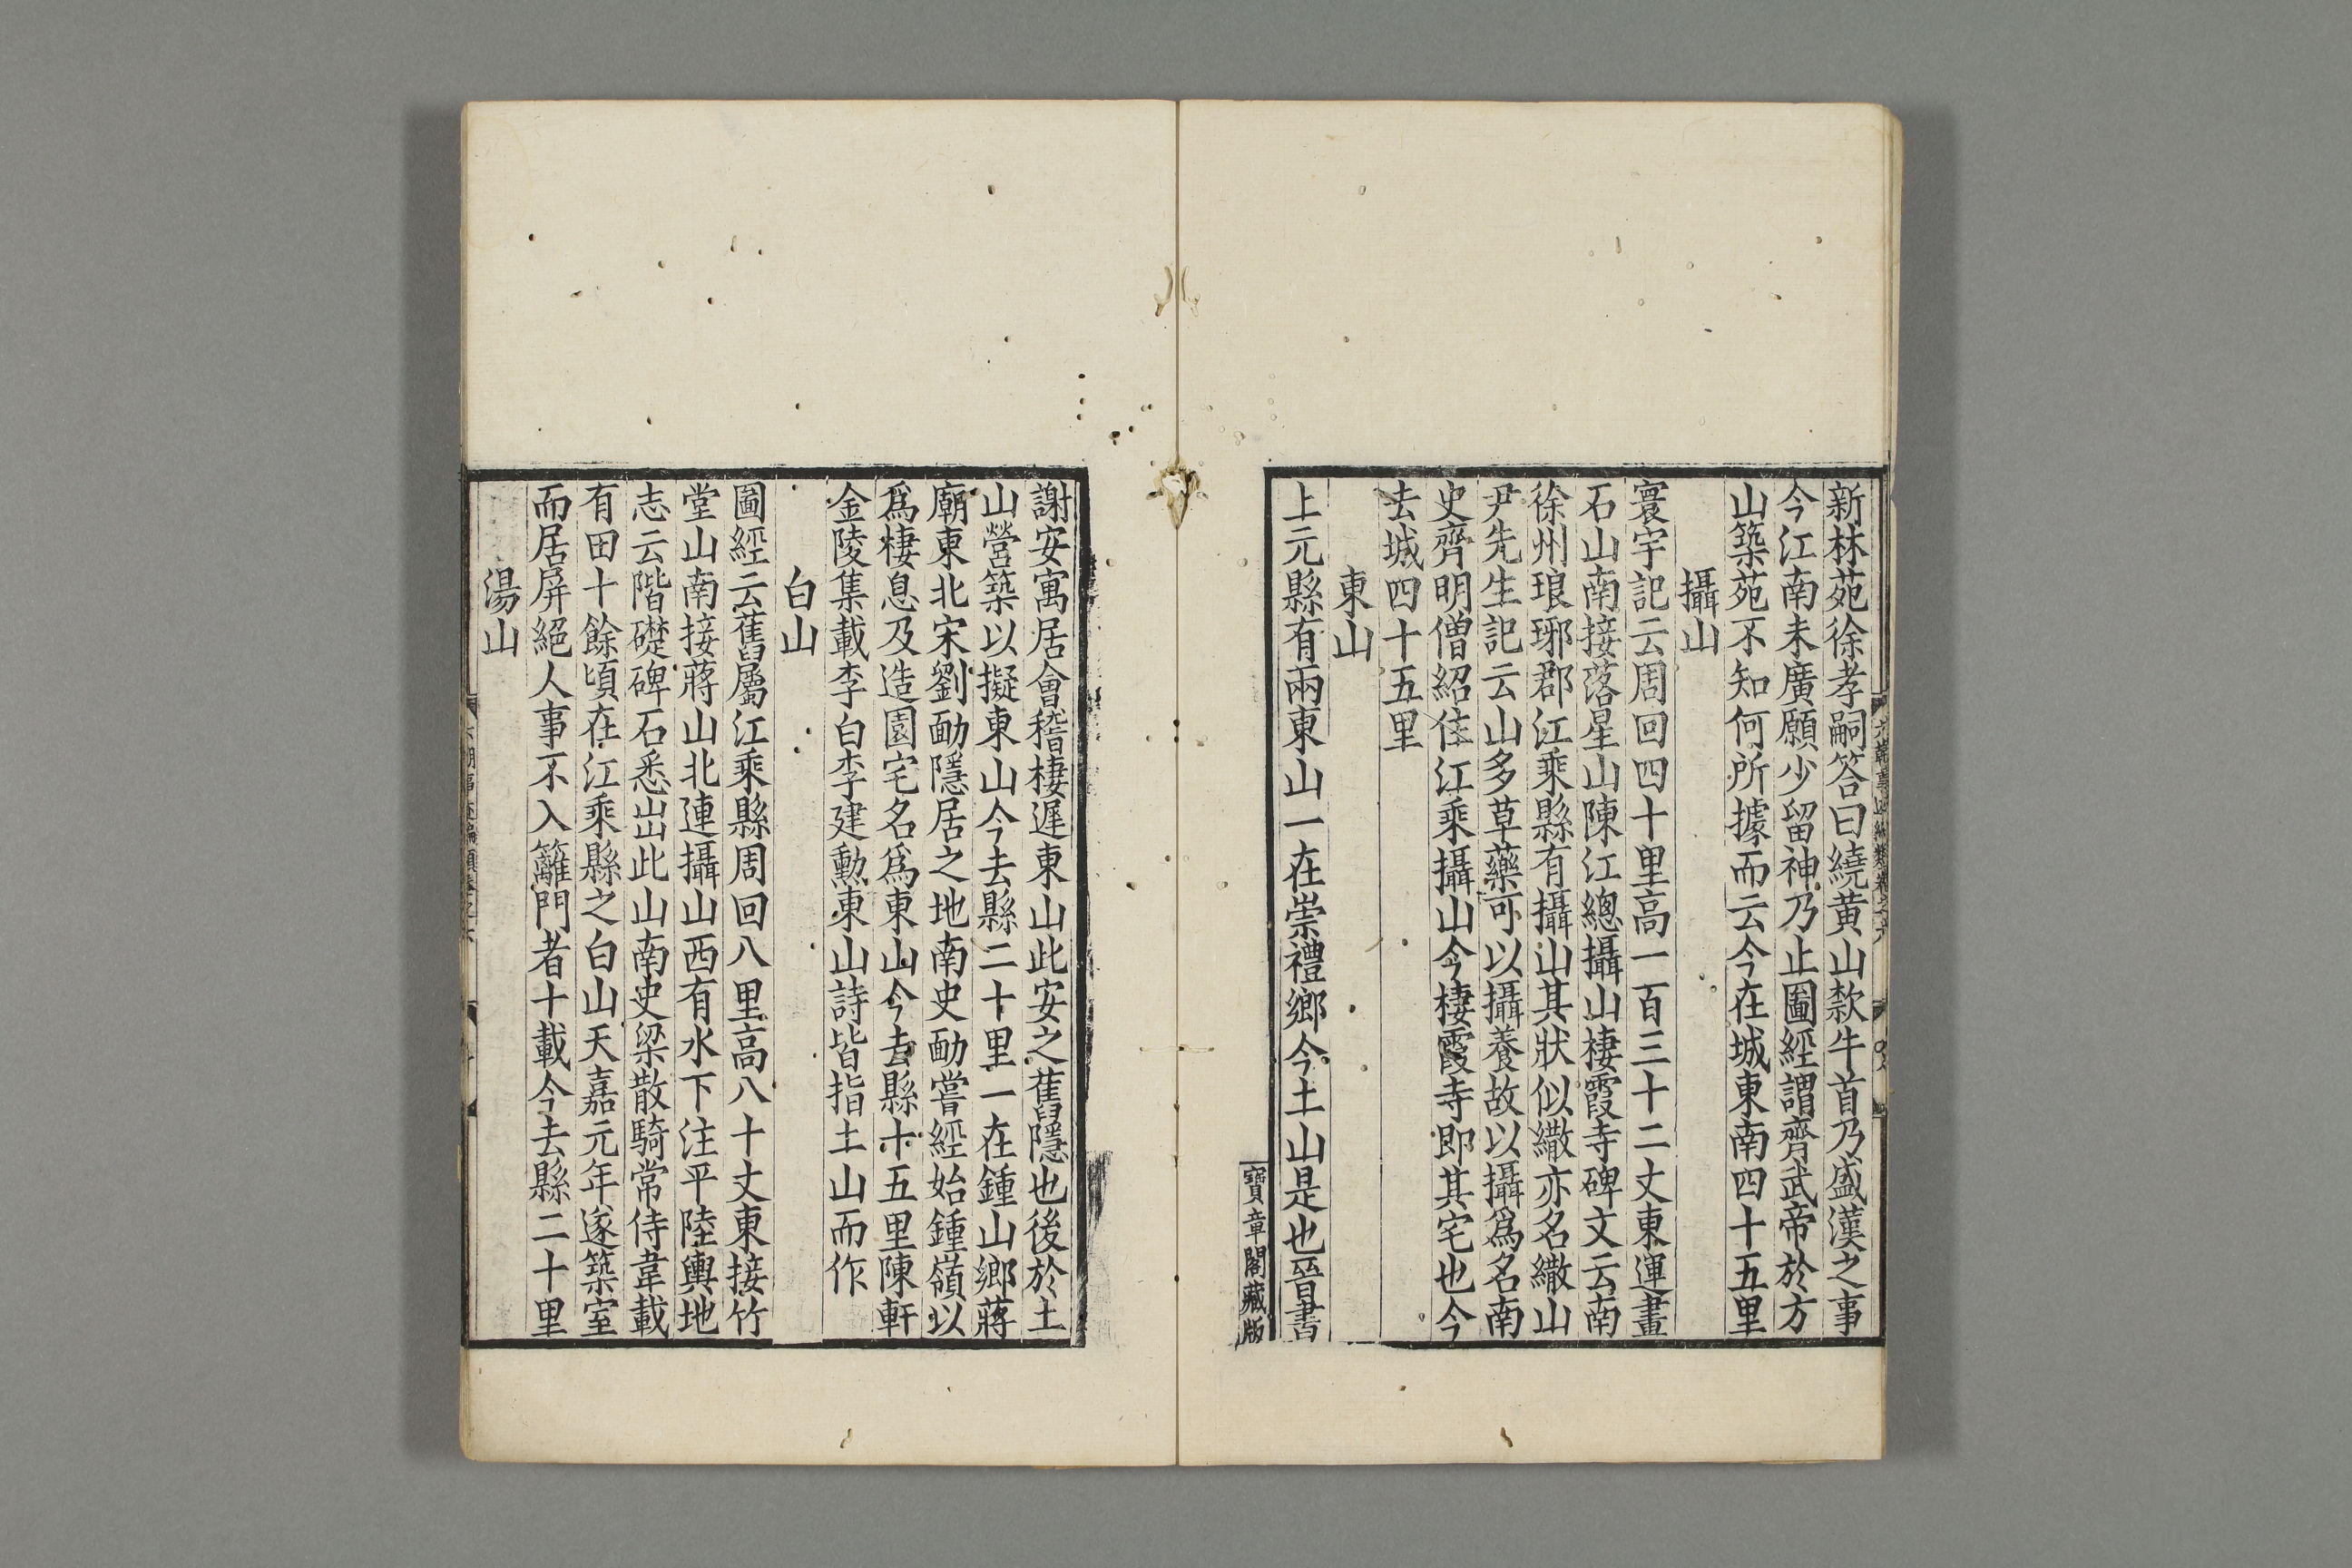 新林苑徐孝嗣答曰繞黄山欵牛首乃盛漢之事
今江南未廣願少留神乃止圖經謂齊武帝於方
山築苑不知何所據而云今在城東南四十五里
攝山
寰宇記云周回四十里高一百三十二丈東連畫
石山南接落星山陳江總攝山棲霞寺碑文云南
徐州琅琊郡江乘縣有攝山其狀似繖亦名繖山
尹先生記云山多草藥可以攝養故以攝爲名南
史齊明僧紹住江乘攝山今棲霞寺即其宅也今
去城四十五里
東山
上元縣有兩東山一在崇禮鄉今土山是也晉書
寶章閣藏版
謝安寓居會稽棲遲東山此安之舊隱也後於土
山營築以擬東山今去縣二十里一在鍾山鄉蔣
廟東北宋劉勔隱居之地南史勔嘗經始鍾嶺以
爲棲息及造園宅名爲東山今去縣十五里陳軒
金陵集載李白李建勳東山詩皆指土山而作
白山
圖經云舊屬江乘縣周回八里高八十丈東接竹
堂山南接蔣山北連攝山西有水下注平陸輿地
志云階礎碑石悉出此山南史梁散騎常侍韋載
有田十餘頃在江乘縣之白山天嘉元年遂築室
而居屏絕人事不入籬門者十載今去縣二十里
湯山